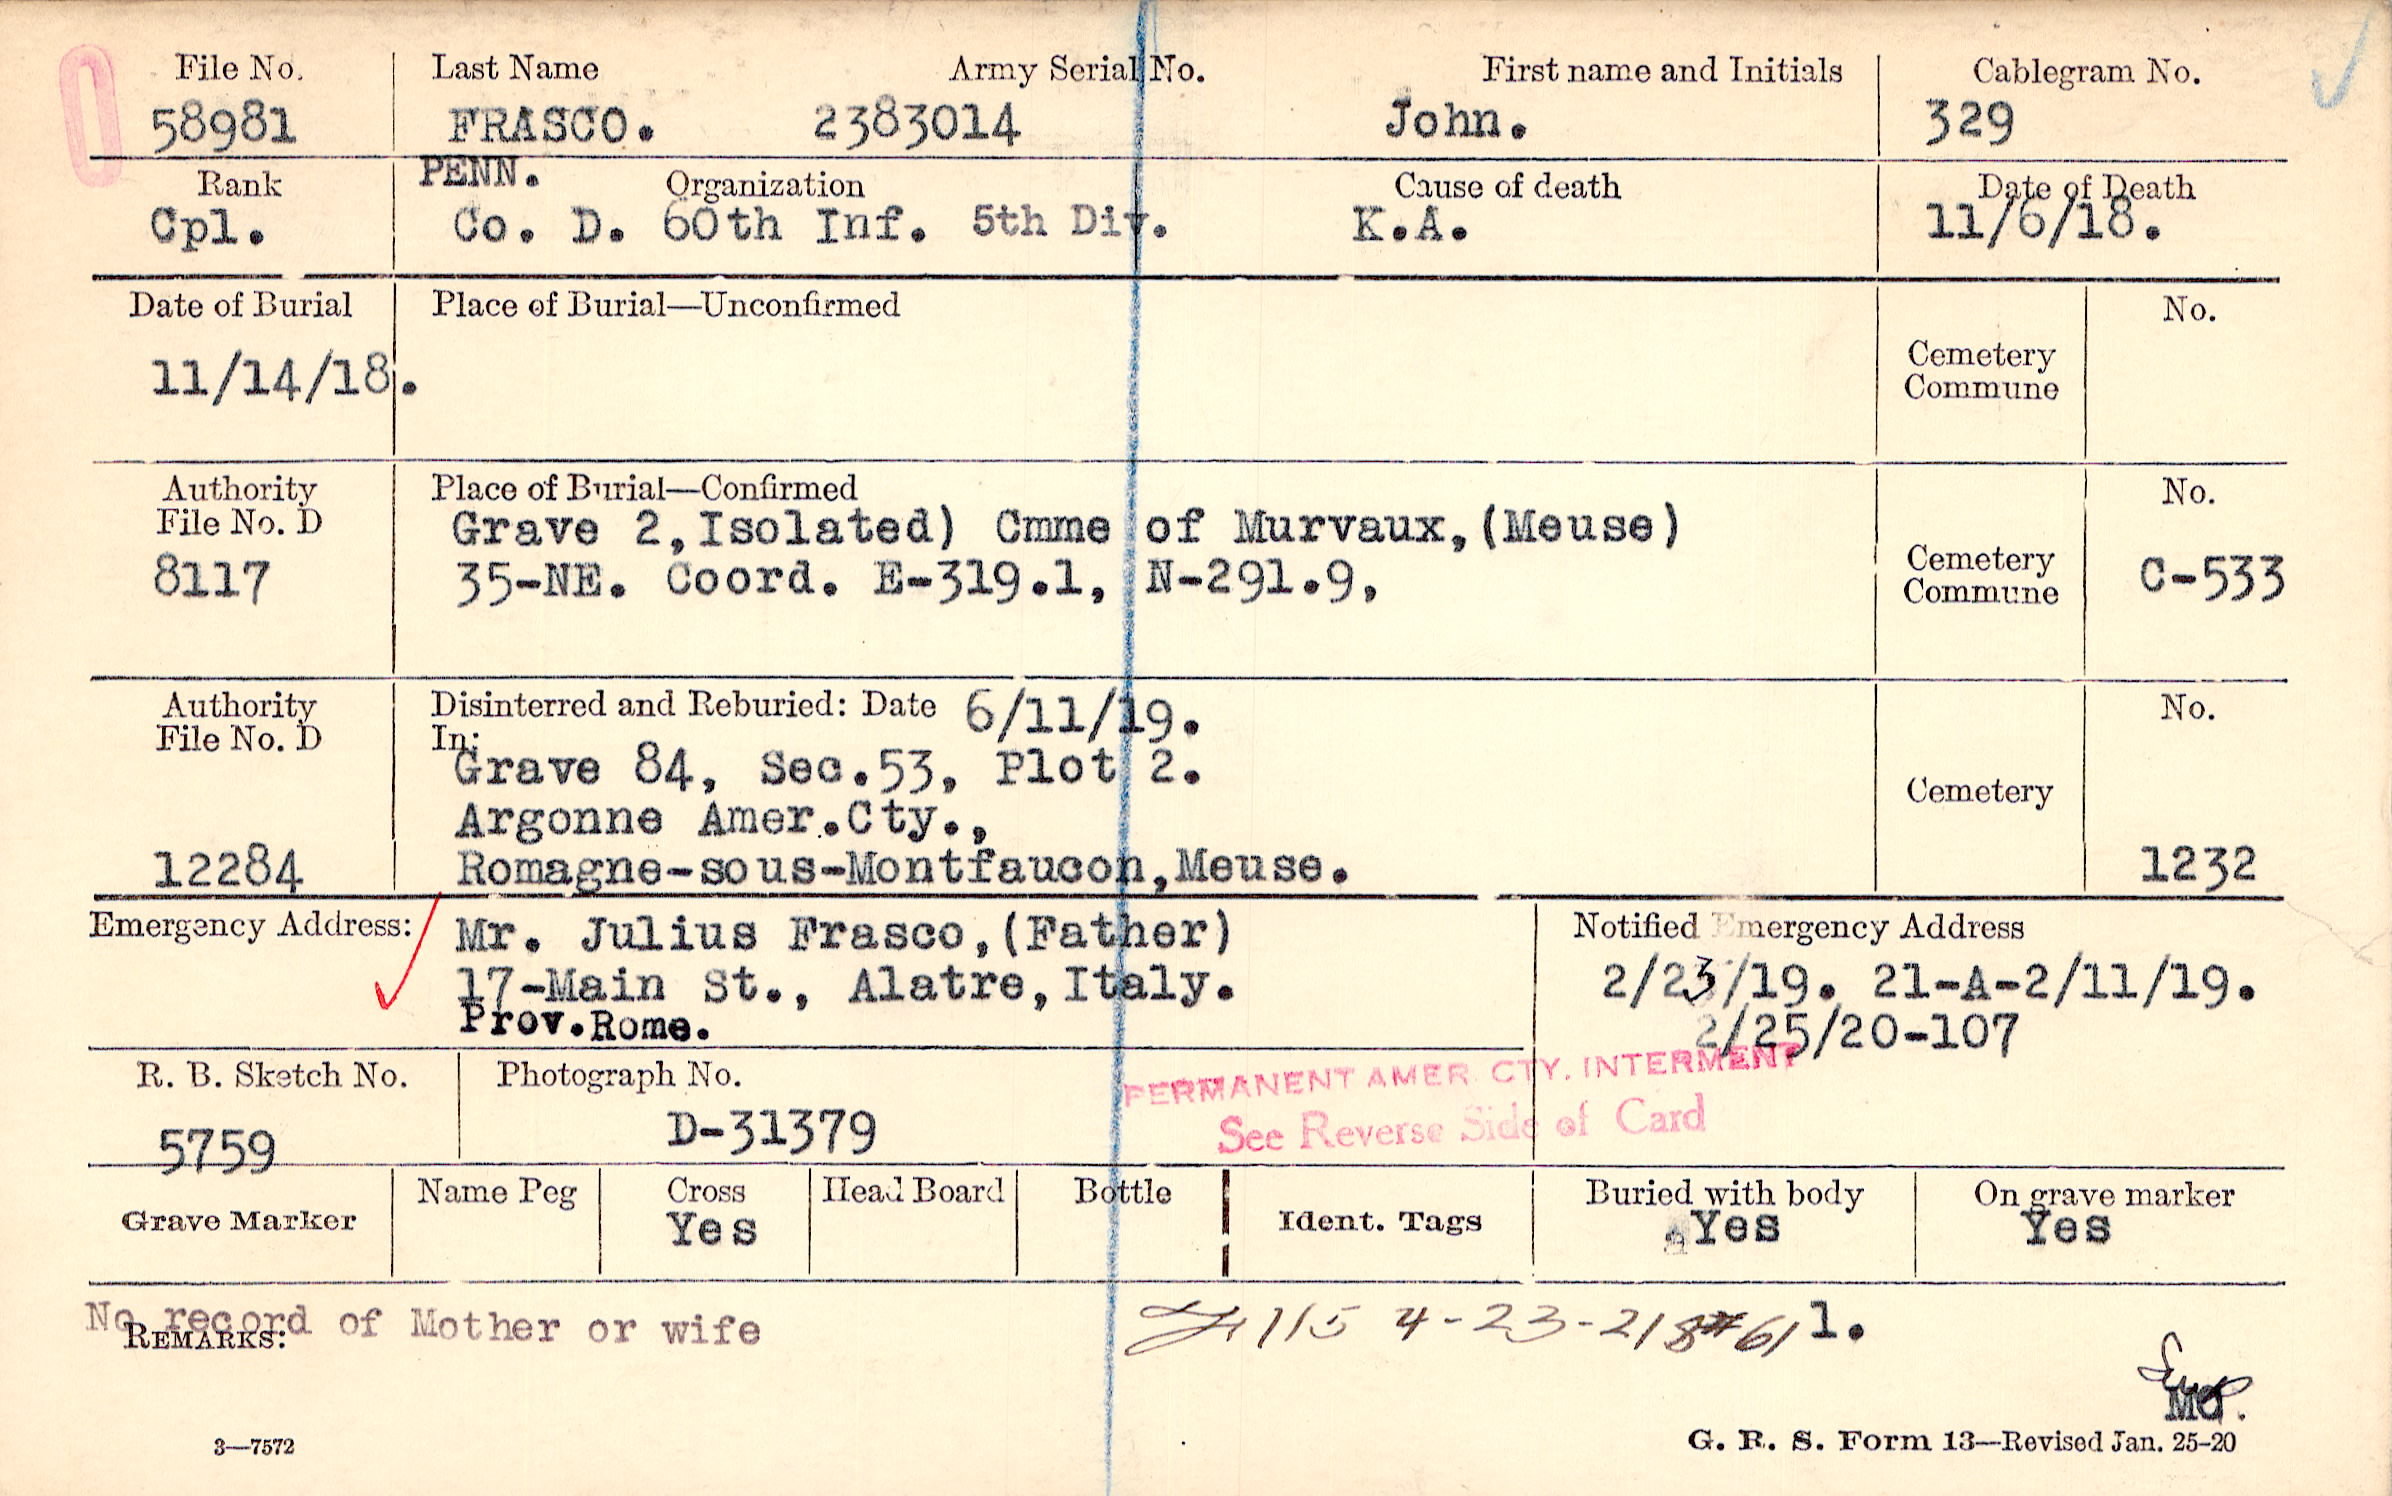 File No. Last Name Army Serial No. First name and Initials Cablegram No.
58981 FRASCO. 2383014 John. 329
Rank PENN. Organization Cause of death Date of Death
Cpl. Co. D. 60th Inf. 5th Div. K.A. 11/6/18.
Date of Burial Place of Burial—Unconfirmed No.
11/14/18. Cemetery
Commune
Authority Place of Burial—Confirmed No.
File No. D Grave 2,Isolated) Cmme of Murvaux,(Meuse)
8117 35-NE. Coord. E-319.1, N-291.9, Cemetery C-533
Commune
Authority Disinterred and Reburied: Date 6/11/19. No.
File No. D In:
Grave 84, Sec.53, Plot 2.
Argonne Amer.Cty., Cemetery
12284 Romagne-sous-Montfaucon,Meuse. 1232
Emergency Address: Mr. Julius Frasco,(Father) Notified Emergency Address
17-Main St., Alatre,Italy. 2/23/19. 21-A-2/11/19.
Prov.Rome. 2/25/20-107
R. B. Sketch No. Photograph No. PERMANENT AMER. CTY. INTERMENT
5759 D-31379 See Reverse Side of Card
Grave Marker Name Peg Cross Head Board Bottle Ident. Tags Buried with body On grave marker
Yes Yes Yes
No record of Mother or wife 115 4-23-21 8#61 1.
REMARKS:
3—7572 G. R. S. Form 13—Revised Jan. 25-20